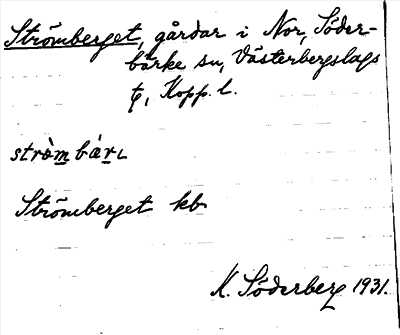 Strömberget, gårdar i Nor, Söder-
bärke sn, Västerbergslags
Kopp. l.
Strömberget kb
K. Söderberg 1931.